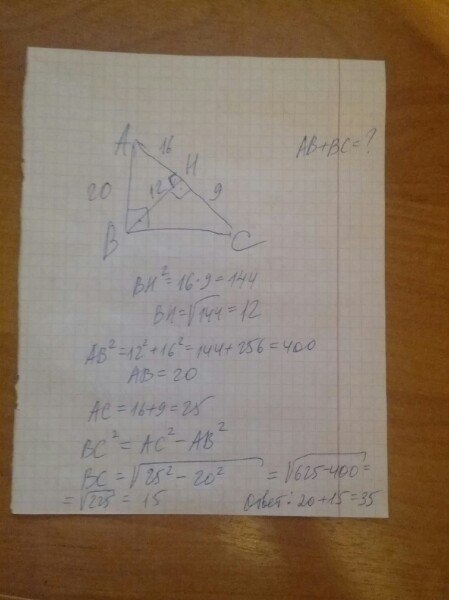 A 16
AB+BC=?
H
20 12 9
B C
BH²=16·9=144
BH=√144=12
AB²=12²+16²=144+256=400
AB=20
AC=16+9=25
BC²=AC²-AB²
BC=√25²-20² =√625-400=
=√225=15 Ответ: 20+15=35